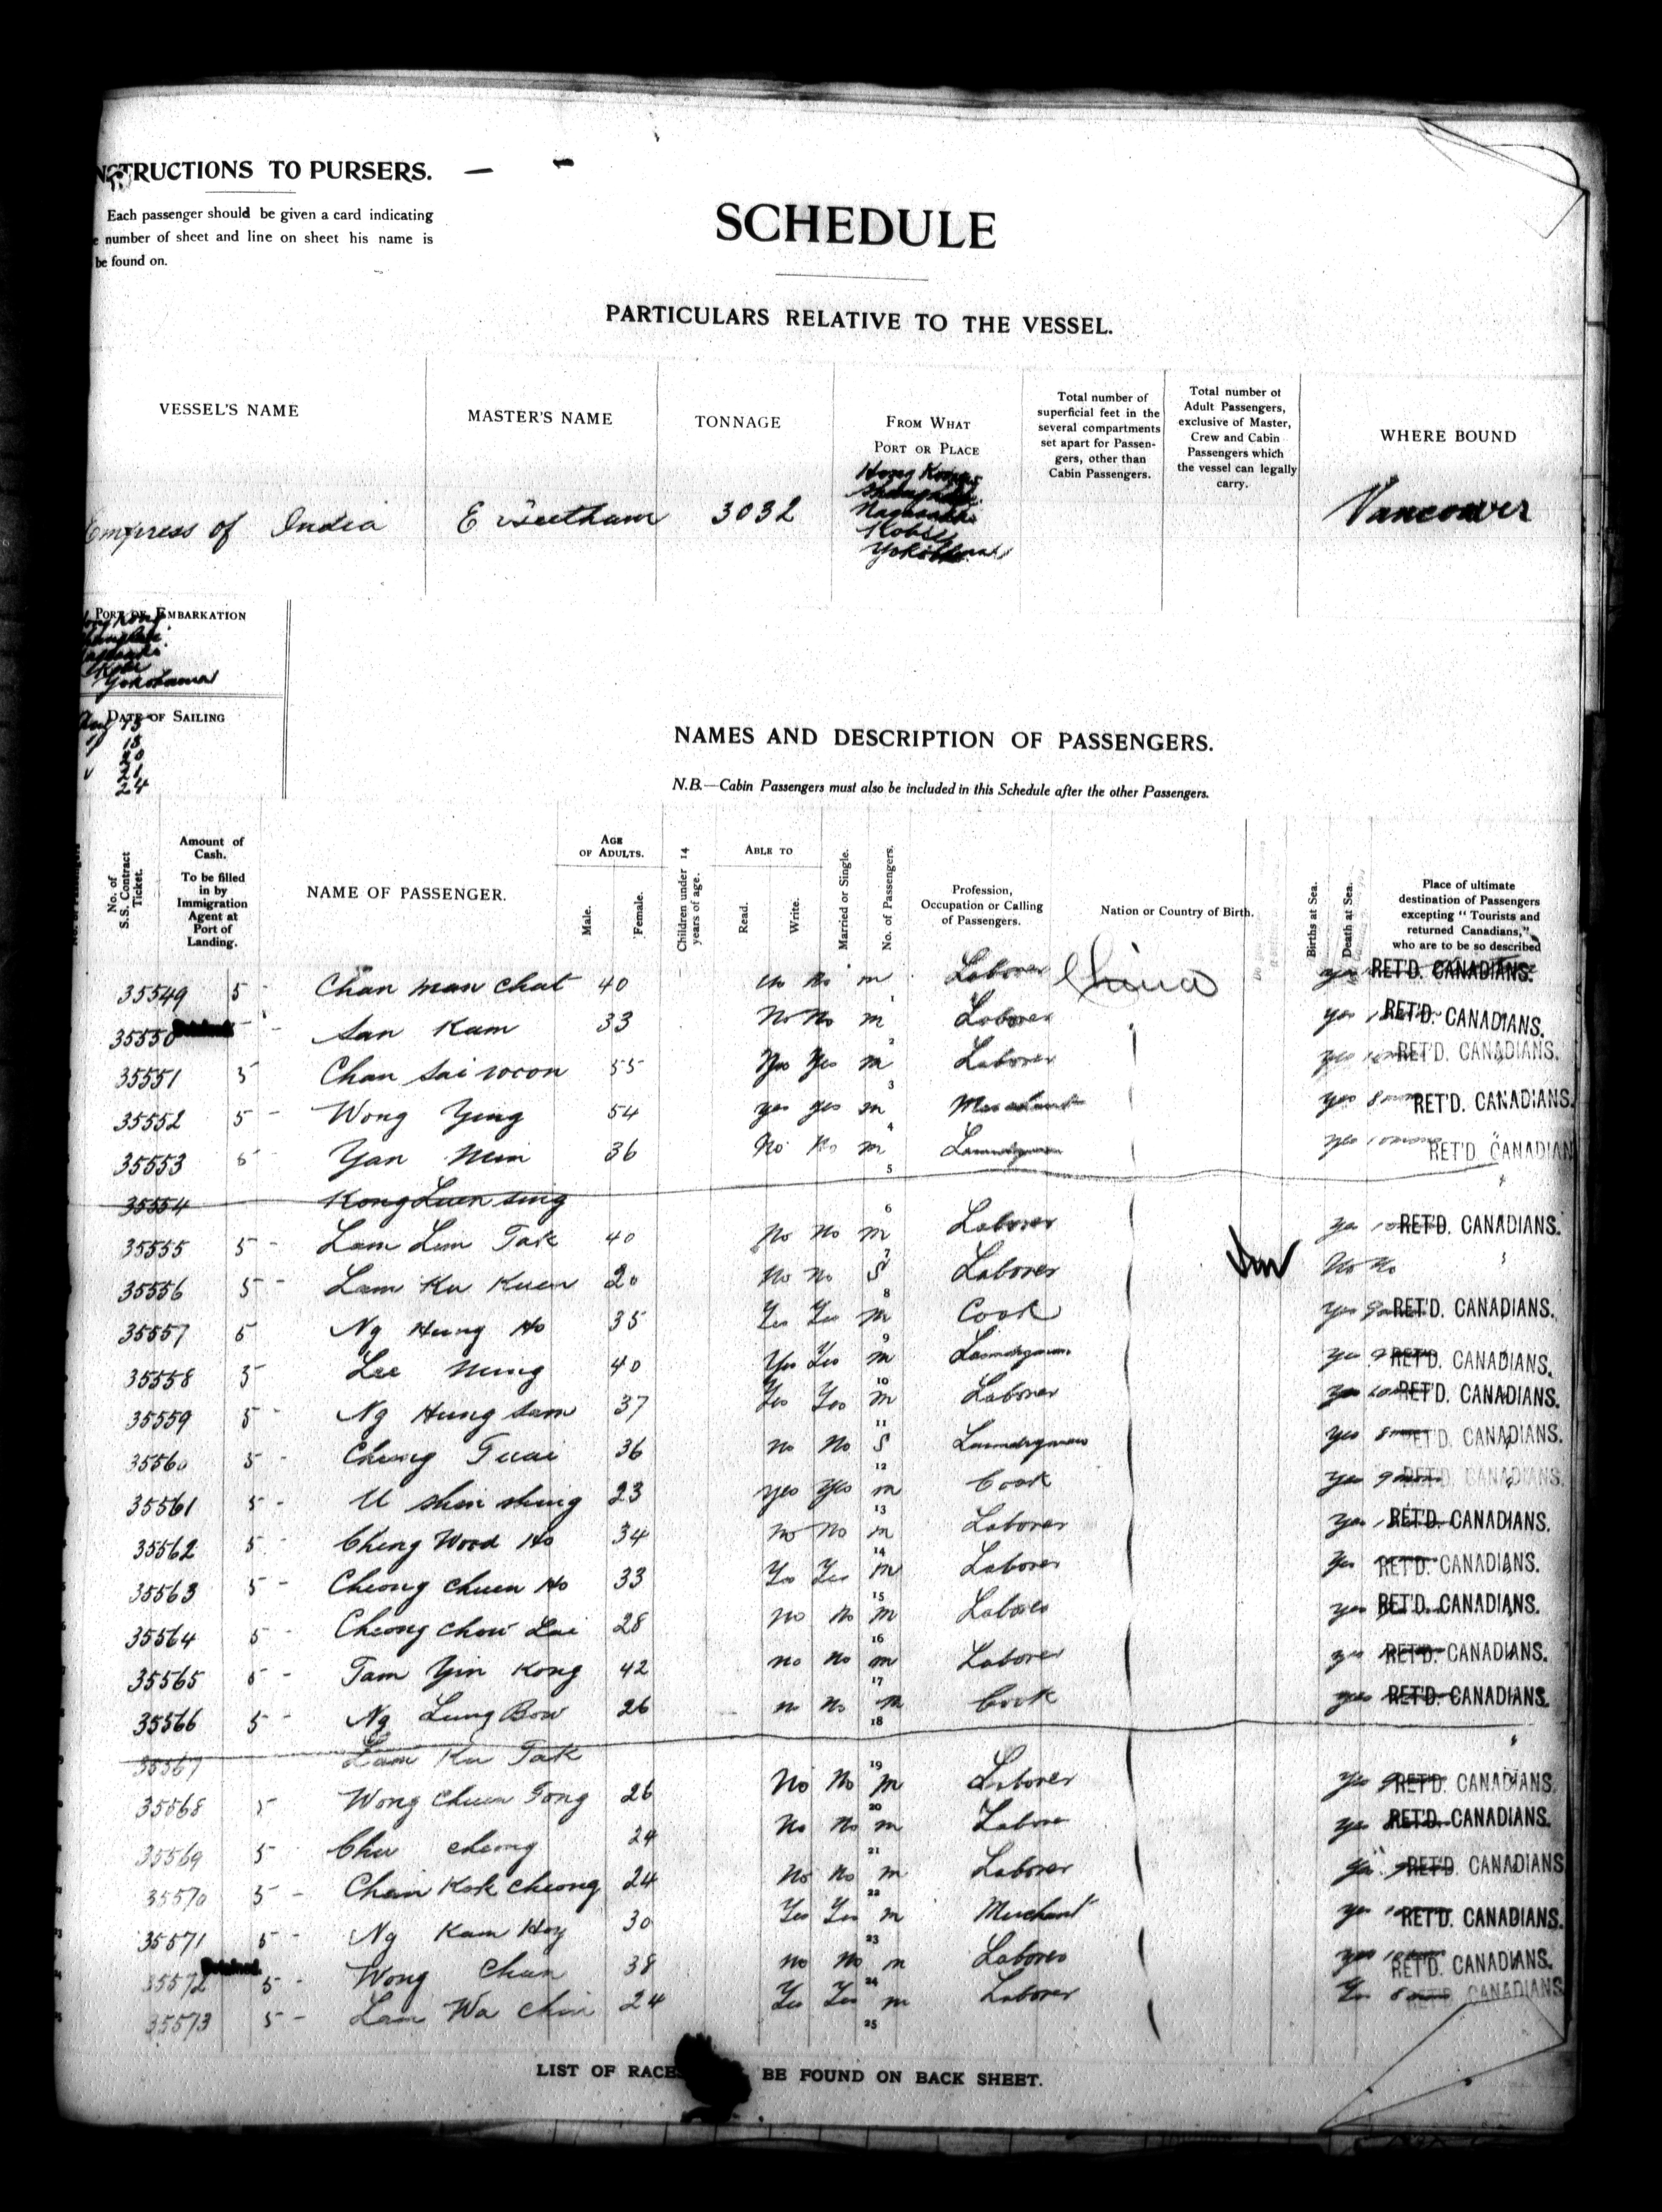 INSTRUCTIONS TO PURSERS.
Each passenger should be given a card indicating
number of sheet and line on sheet his name is
be found on.
SCHEDULE
PARTICULARS RELATIVE TO THE VESSEL.
VESSEL'S NAME
MASTER'S NAME
TONNAGE
FROM WHAT PORT OR PLACE
Total number of superficial feet in the several compartments set apart for Passengers, other than Cabin Passengers.
Total number of Adult Passengers, exclusive of Master, Crew and Cabin Passengers which the vessel can legally carry.
WHERE BOUND
Empress of India
E Beetham
3032
Hong Kong
Shanghai
Nagasaki
Kobe
Yokohama
Vancouver
PORT OF EMBARKATION
Hong Kong
Shanghai
Nagasaki
Kobe
Yokohama
DATE OF SAILING
Aug 13
24
NAMES AND DESCRIPTION OF PASSENGERS.
N.B.—Cabin Passengers must also be included in this Schedule after the other Passengers.
No. of S.S. Contract Ticket.
Amount of Cash. To be filled in by Immigration Agent at Port of Landing.
NAME OF PASSENGER.
AGE OF ADULTS.
Male.
Female.
Children under 14 years of age.
ABLE TO
Read.
Write.
Married or Single.
No. of Passengers.
Profession, Occupation or Calling of Passengers.
Nation or Country of Birth.
Births at Sea.
Death at Sea.
Place of ultimate destination of Passengers excepting "Tourists and returned Canadians," who are to be so described
35549 5 - Chan man chat 40 No m Laborer China yes RET'D. CANADIANS.
35550 5 - San Kam 33 No No m 1 Laborer yes RET'D. CANADIANS.
35551 5 Chan Sai woon 55 Yes Yes m 2 Laborer yes RET'D. CANADIANS.
35552 5 - Wong Ying 54 yes yes m 3 Merchant yes 8 RET'D. CANADIANS.
35553 5 - Yan Mun 36 No No m 4 Laundryman yes 10 mons RET'D. CANADIAN
5
35554 Kong Luen sing
35555 5 - Lam Lim Tak 40 No No m 6 Laborer ye RET'D. CANADIANS.
35556 5 - Lam Ku Kuen 20 No no S 7 Laborer No No
35557 5 Ng Hung Ho 35 Yes Yes m 8 Cook Yes RET'D. CANADIANS.
35558 5 Lee Ming 40 Yes Yes m 9 Laundryman yes RET'D. CANADIANS.
35559 5 - Ng Hung Sam 37 Yes Yes m 10 Laborer yes RET'D. CANADIANS.
35560 5 - Cheung Tuai 36 no No S 11 Laundryman yes 8 RET'D. CANADIANS.
35561 5 - U shin shing 23 yes yes m 12 Cook yes 9 mons RET'D. CANADIANS.
35562 5 - Cheng Wood Ho 34 no No m 13 Laborer yes RET'D. CANADIANS.
35563 5 - Cheong Chuen Ho 33 Yes Yes m 14 Laborer yes RET'D. CANADIANS.
35564 5 - Cheong chow Lai 28 no No m 15 Laborer yes RET'D. CANADIANS.
35565 5 - Tam Yin Kong 42 no no m 16 Laborer yes RET'D. CANADIANS.
35566 5 - Ng Lung Bow 26 no No m 17 Cook yes RET'D. CANADIANS.
18
35567 Lam Ku Tak
35568 5 Wong Chuen Fong 26 No No m 19 Laborer Yes RET'D. CANADIANS.
35569 5 - Chu cheong 24 No No m 20 Labore yes RET'D. CANADIANS.
35570 5 - Chan Kok cheong 24 No No m 21 Laborer Yes RET'D. CANADIANS
35571 5 - Ng Kam Hoy 30 Yes Yes m 22 Merchant yes RET'D. CANADIANS.
35572 5 - Wong Chan 38 no No m 23 Laborer yes RET'D. CANADIANS.
35573 5 - Lam Wa Chin 24 Yes Yes m 24 Laborer Yes 8 RET'D. CANADIANS
25
LIST OF RACES BE FOUND ON BACK SHEET.